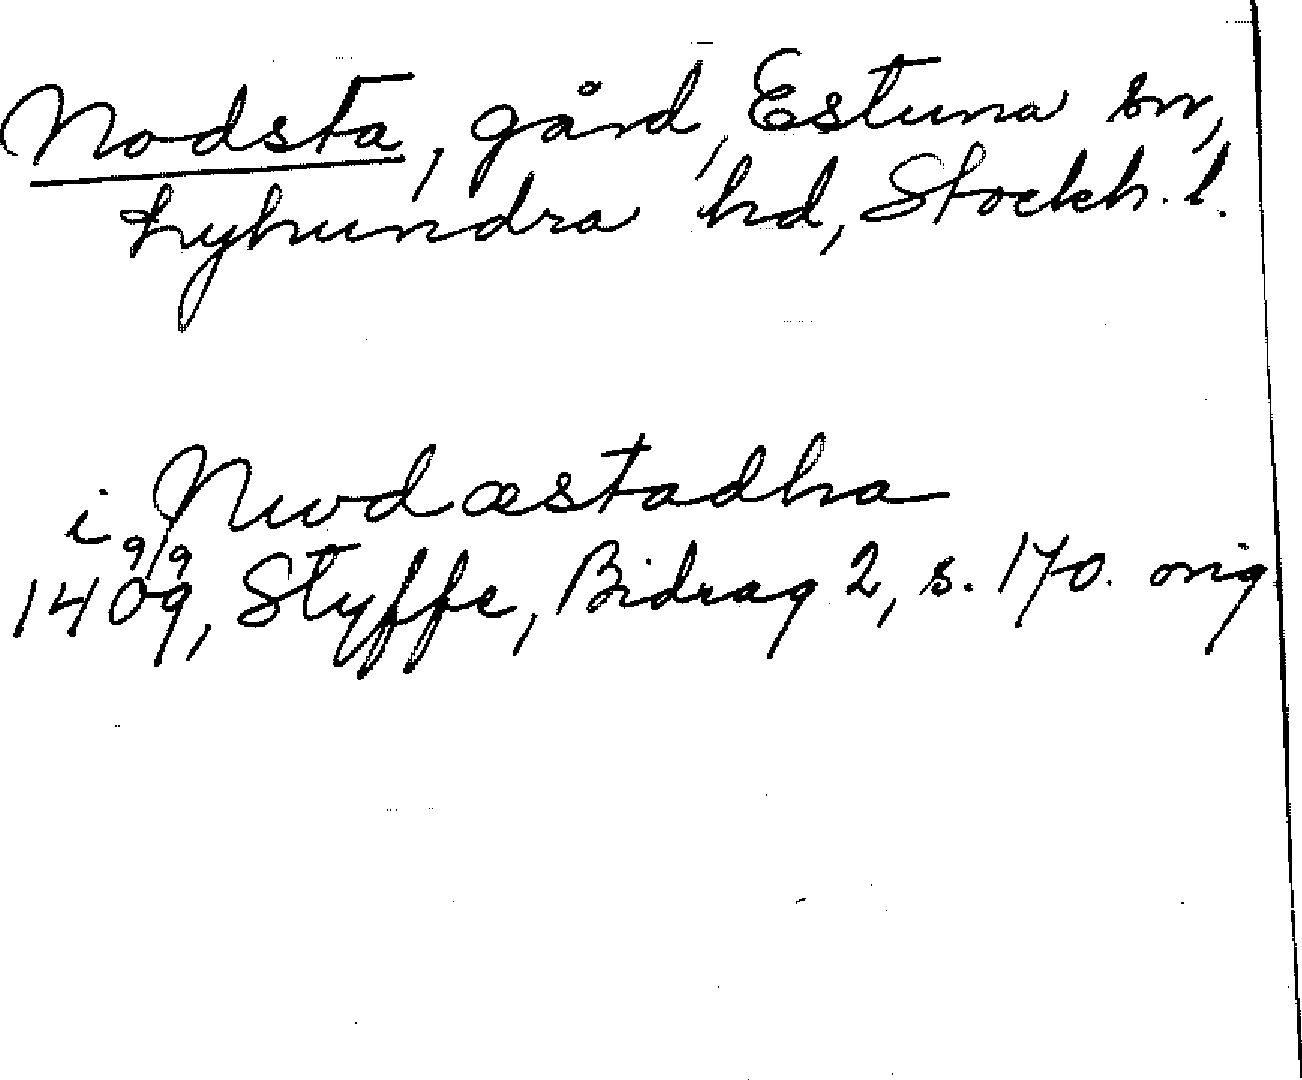 Nodsta, gård, Estuna sn,
Lyhundra hd, Stockh. l.
i Nwdæstadha
9/9
1409, Styffe, Bidrag 2, s. 170. orig